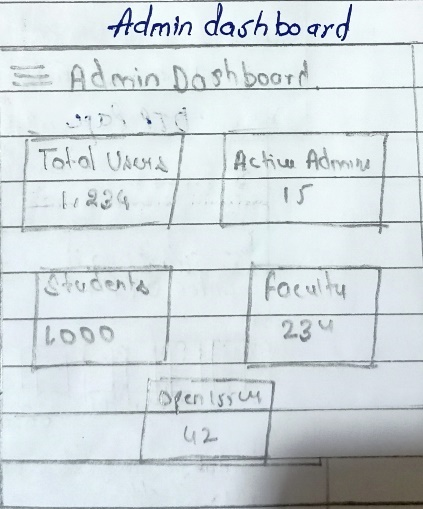 Admin dashboard
Admin Dashboard
Total Users Active Admins
1,234 15
Students Faculty
1000 234
Open Issues
42